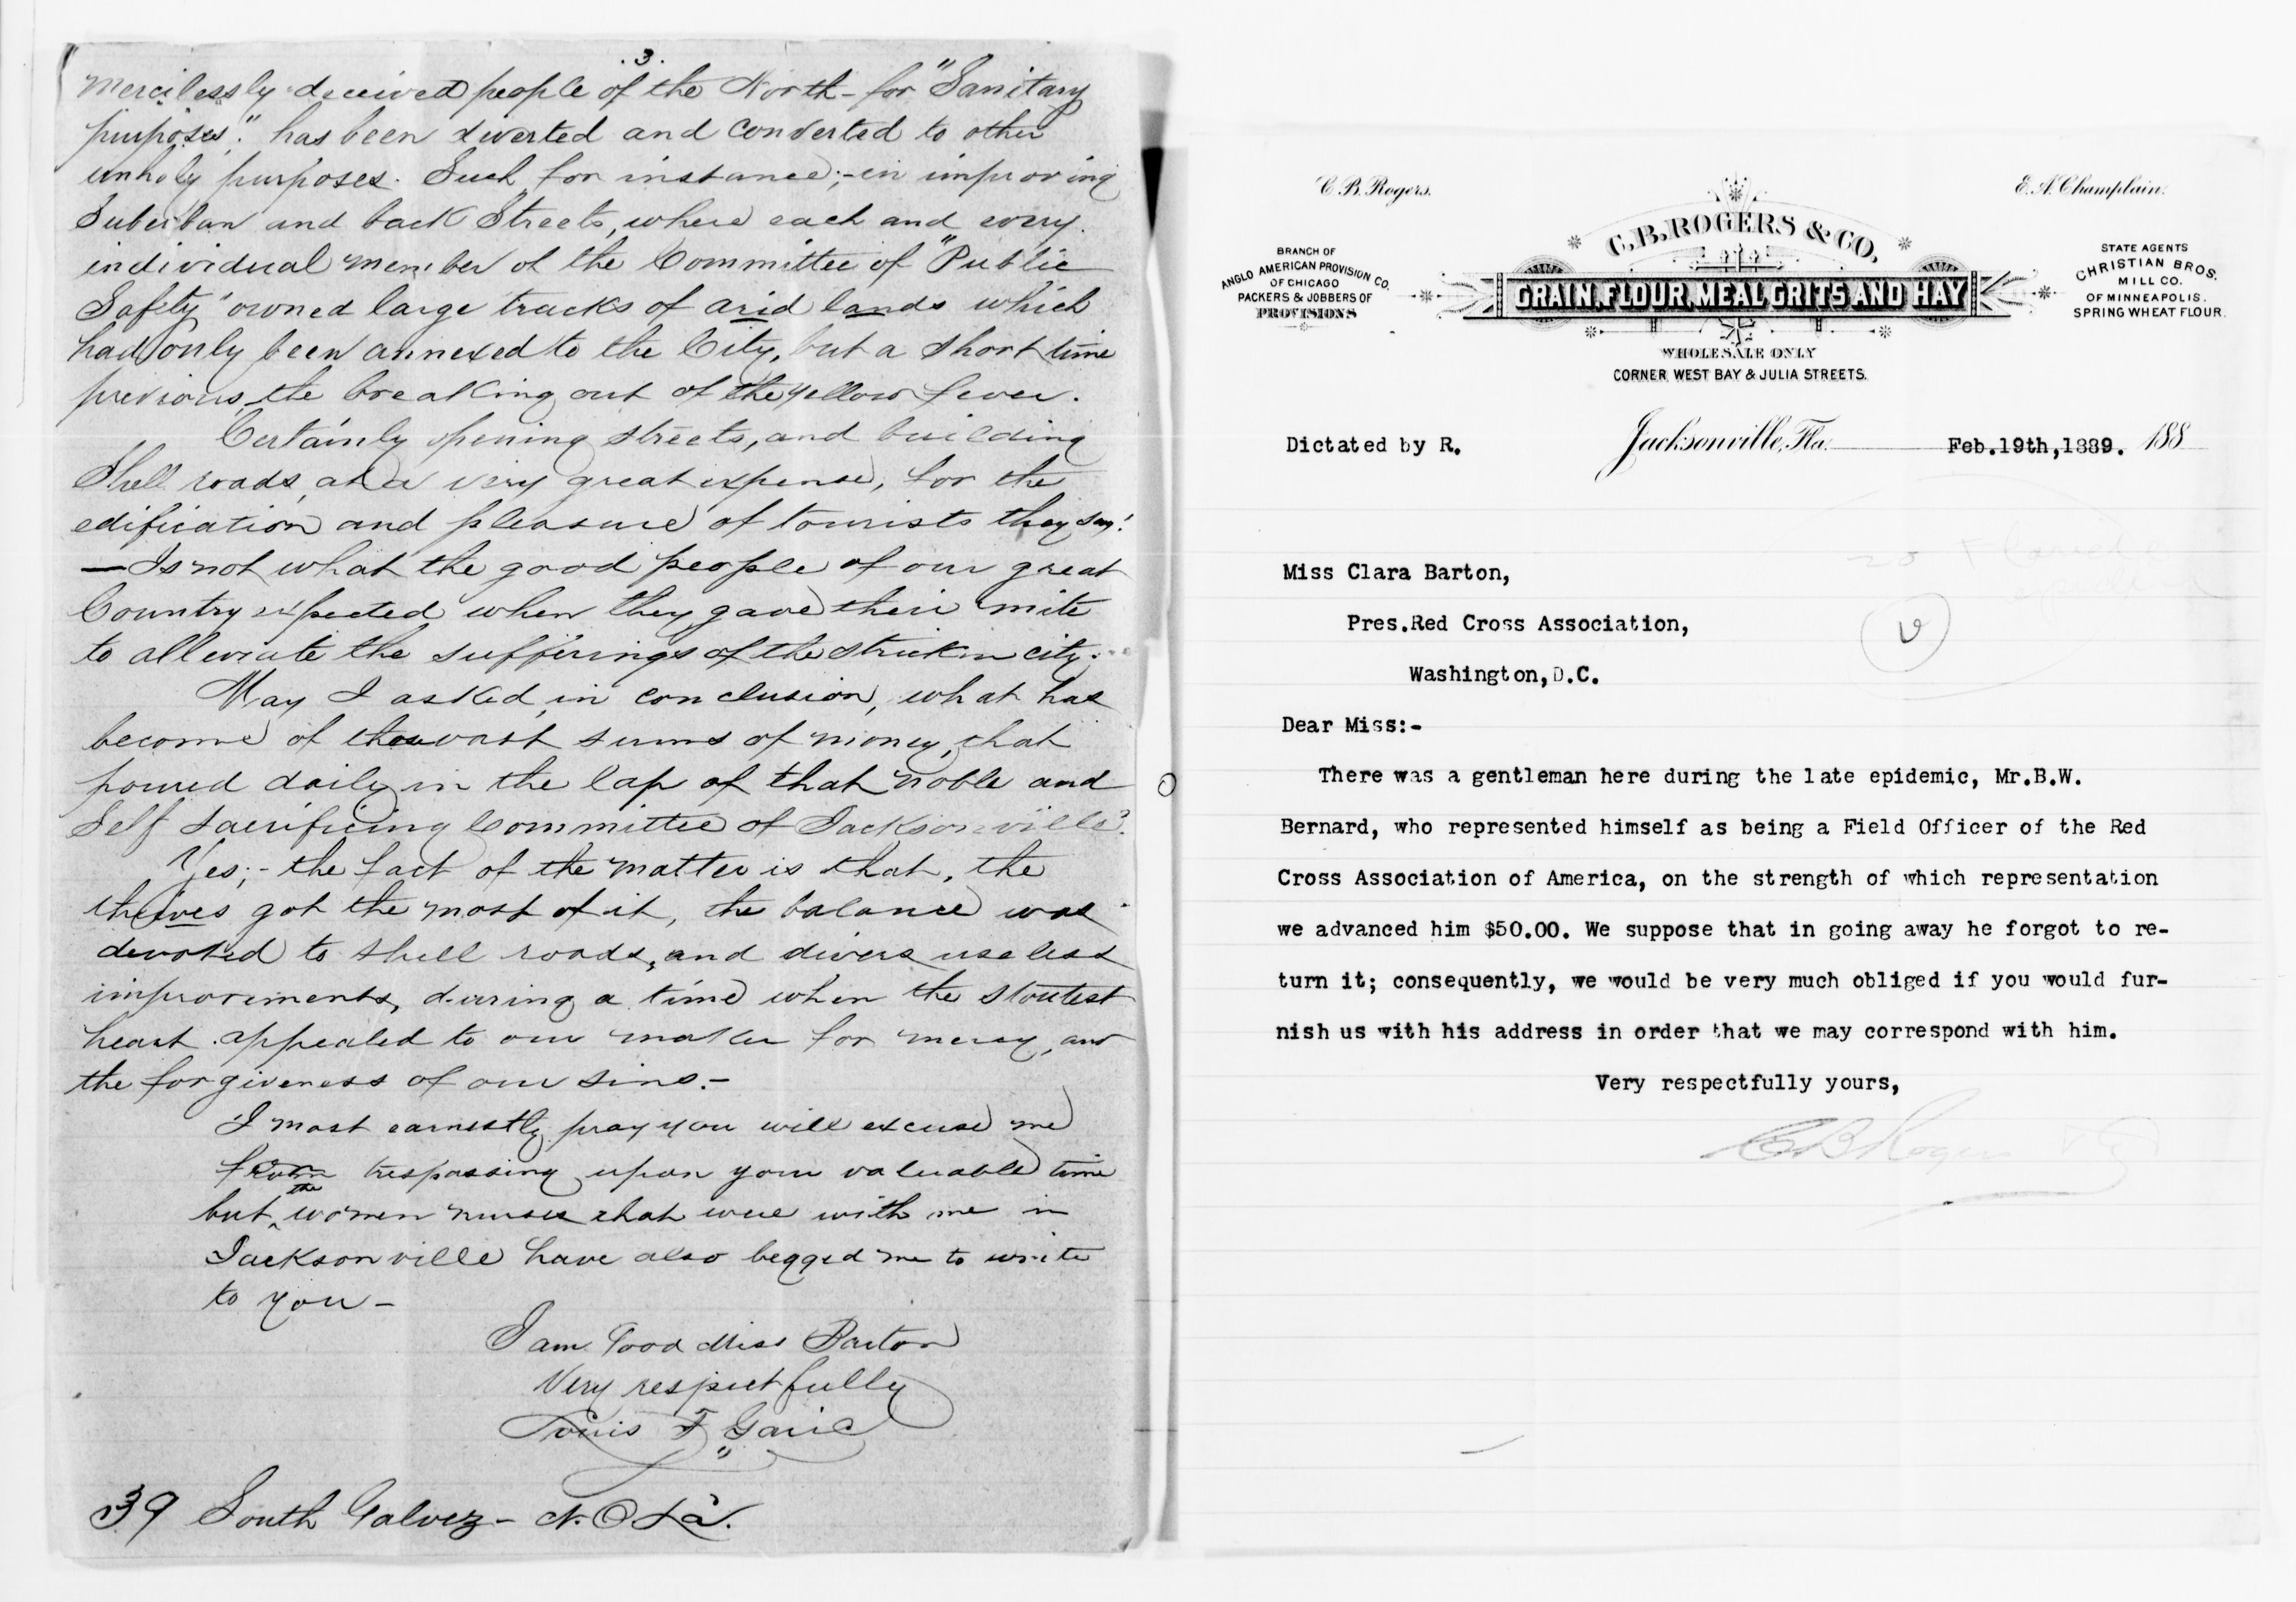 .3.
mercilessly deceived people of the North - for "Sanitary
purposes". has been diverted and converted to other
unholy purposes. Such for instance;- in improving
Suburban and back Streets, where each and every
individual member of the Committee of "Public
Safety" owned large tracks of arid lands which
had only been annexed to the City, but a short time
previous the breaking out of the yellow fever.
Certainly opening streets, and building
Shell roads, at a very great expense, for the
edification and pleasure of tourists they say!
— Is not what the good people of our great
Country expected when they gave their mite
to alleviate the sufferings of the stricken city.
May I asked, in conclusion, what has
become of those vast sums of money, that
poured daily in the lap of that noble and
Self sacrificing Committee of Jacksonville?
Yes;- the fact of the matter is that, the
theives got the most of it, the balance was
devoted to shell roads, and divers useless
improvements, during a time when the stoutest
heart appealed to our maker for mercy, and
the forgiveness of our sins.-
I most earnestly pray you will excuse me
from trespassing upon your valuable time
but the women nurses that were with me in
Jacksonville have also begged me to write
to you -
I am Good Miss Barton
Very respectfully
Louis F Garic
39 South Galvez - N.O La.
C. B. Rogers.
E. A. Champlain.
C. B. ROGERS & CO.
BRANCH OF
ANGLO AMERICAN PROVISION CO.
OF CHICAGO
PACKERS & JOBBERS OF
PROVISIONS
GRAIN, FLOUR, MEAL, GRITS AND HAY
STATE AGENTS
CHRISTIAN BROS.
MILL CO.
OF MINNEAPOLIS.
SPRING WHEAT FLOUR.
WHOLESALE ONLY
CORNER WEST BAY & JULIA STREETS.
Dictated by R. Jacksonville, Fla. Feb.19th,1889. 188
Miss Clara Barton,
Pres.Red Cross Association,
Washington,D.C.
Dear Miss:-
There was a gentleman here during the late epidemic, Mr.B.W.
Bernard, who represented himself as being a Field Officer of the Red
Cross Association of America, on the strength of which representation
we advanced him $50.00. We suppose that in going away he forgot to re-
turn it; consequently, we would be very much obliged if you would fur-
nish us with his address in order that we may correspond with him.
Very respectfully yours,
C B Rogers